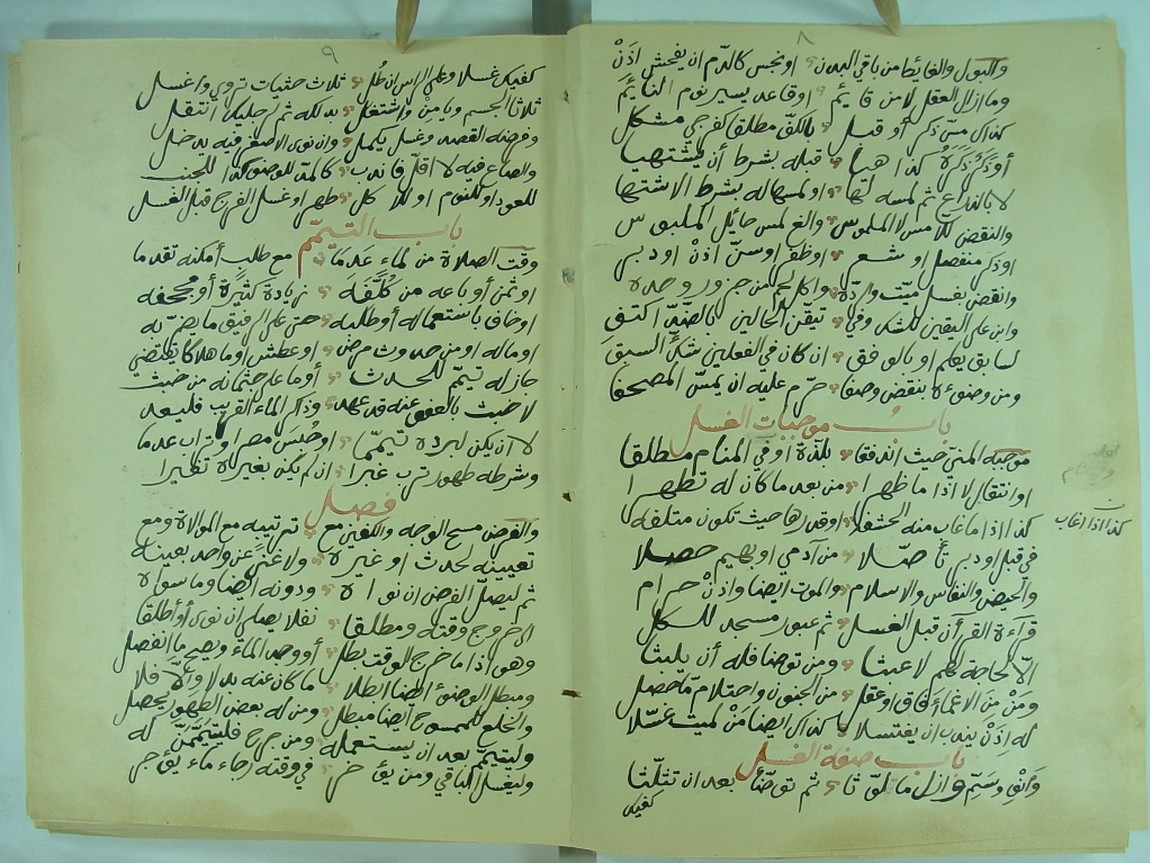 ٨
والبول والغائط من باقي البدن ؞ او نجس كالدم ان يفحش اذن
وما ازال العقل لا من قائم ؞ او قاعد يسير نوم النائم
كذاك مس ذكر أو قبل ؞ بالكف مطلقا كفرجي مشكل
أو ذكر ذكره كذا هيا ؞ قبله بشرط أن يشتهيا
لا بالذراع ثم لمسه لها ؞ او لمسها له بشرط الاشتها
والنقض للامس لا الملموس ؞ والغ لمس حائل الملبوس
او ذكر منفصل او شعر ؞ او ظفر او سن اذن او دبر
وانقض بغسل ميت والردة ؞ واكل لحم من جزور وحده
وابن على اليقين للشك وفي ؞ تيقن الحالين بالضد اكتف
لسابق يعلم او بالوفق ؞ ان كان في الفعلين شك السبق
ومن وضوءه بنقض وصفا ؞ حرم عليه ان يمس المصحفا
باب موجبات الغسل
موجبه المني حيث اندفقا ؞ بلذة او في المنام مطلقا
او انتقال لا اذا ما ظهرا ؞ من بعد ما كان له تطهرا
كذا اذا ما غاب منه الحشفه ؞ او قدرها حيث تكون متلفه
كذا اذا غاب
في قبل او دبر تأصلا ؞ من آدمي او بهيم حصلا
والحيض والنفاس والاسلام ؞ والموت ايضا واذن حرام
قراءة القرآن قبل الغسل ؞ ثم عبور مسجد للكل
الا لحاجة لهم لا عبثا ؞ ومن توضا فله أن يلبثا
ومن من الاغماء فاق او عقل ؞ من الجنون واحتلام ما حصل
له اذن يندب ان يغتسلا ؞ كذاك ايضا من لميت غسلا
باب صفة الغسل
وانو وسم وازل ما لوثا ؞ ثم توضأ بعد ان تثلثا
كفيك
٩
كفيك غسلا وعلى الراس ان طل ؞ ثلاث حثيات تروي واغسل
ثلاثا الجسم ويامن واشتغل ؞ بدلكه ثم رجليك انتقل
وفرضه القصد وغسل يكمل ؞ وان نوى الاصغر فيه يدخل
والصاع فيه لا اقل فاندب ؞ كالمد للوضو كذا للجنب
للعود او للنوم او للاكل ؞ طهر او غسل الفرج قبل الغسل
باب التيمم
وقت الصلاة من لماء عدما ؞ مع طلب أمكنه تقدما
او ثمن أو باعه من كلفه ؞ زيادة كثيرة أو مجحفه
او خاف باستعماله أو طلبه ؞ حتى على الرفيق ما يضر به
او ماله او من حدوث مرض ؞ او عطش او ما هلاكا يقتضي
جاز له تيمم للحدث ؞ أو ما على جثمانه من خبث
لا خبث بالعفو عنه قد عهد ؞ وذاكر الماء القريب فليعد
لا أن يكن لبرده تيمما ؞ او حبس مصر او تراب عدما
وشرطه طهور ترب غبرا ؞ ان لم يكن بغيره تغيرا
فصل
والفرض مسح الوجه والكفين مع ؞ ترتيبه مع الموالاة ومع
تعيينه لحدث او غيره ؞ ولا غنى عن واحد بعينه
ثم ليصل الفرض ان نواه ؞ ودونه ايضا وما سواه
الى خروج وقته ومطلقا ؞ نفلا يصلي ان نوى أو أطلقا
وهو اذا ما خرج الوقت بطل ؞ أو وجد الماء ويصح ما انفصل
ومبطل الوضوء ايضا ابطلا ؞ ما كان عنه بدلا والا فلا
والخلع للممسوح ايضا مبطل ؞ ومن له بعض الطهور يحصل
وليتيمم بعد ان يستعمله ؞ ومن جرح فليتيممن له
وليغسل الباقي ومن يؤخر ؞ في وقته رجاء ماء يؤجر